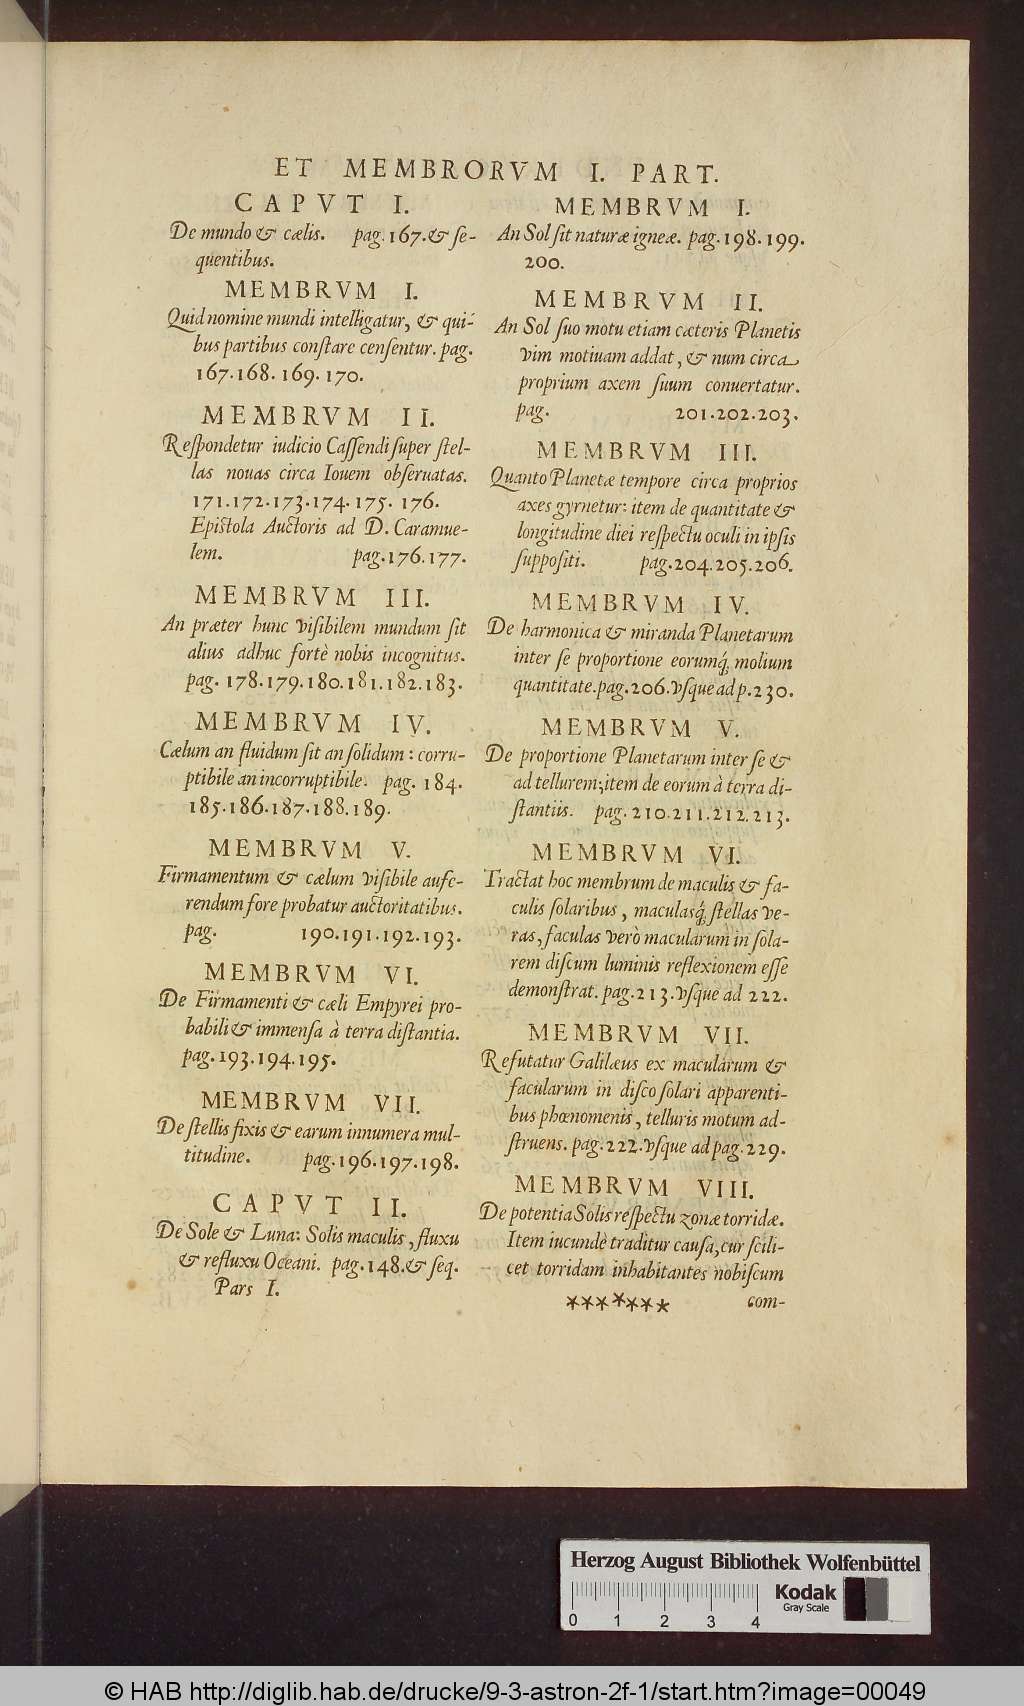 ET MEMBRORVM I. PART.
CAPVT I.
De mundo & cælis. pag. 167. & ſe-
quentibus.
MEMBRVM I.
Quid nomine mundi intelligatur, & qui-
bus partibus conſtare cenſentur. pag.
167. 168. 169. 170.
MEMBRVM II.
Reſpondetur iudicio Caſſendi ſuper ſtel-
las nouas circa Iouem obſeruatas.
171. 172. 173. 174. 175. 176.
Epiſtola Auctoris ad D. Caramue-
lem. pag. 176. 177.
MEMBRVM III.
An præter hunc viſibilem mundum ſit
alius adhuc fortè nobis incognitus.
pag. 178. 179. 180. 181. 182. 183.
MEMBRVM IV.
Cælum an fluidum ſit an ſolidum: corru-
ptibile an incorruptibile. pag. 184.
185. 186. 187. 188. 189.
MEMBRVM V.
Firmamentum & cælum viſibile aufe-
rendum fore probatur auctoritatibus.
pag. 190. 191. 192. 193.
MEMBRVM VI.
De Firmamenti & cæli Empyrei pro-
babili & immenſa à terra diſtantia.
pag. 193. 194. 195.
MEMBRVM VII.
De ſtellis fixis & earum innumera mul-
titudine. pag. 196. 197. 198.
CAPVT II.
De Sole & Luna: Solis maculis, fluxu
& refluxu Oceani. pag. 148. & ſeq.
Pars I.
MEMBRVM I.
An Sol ſit naturæ igneæ. pag. 198. 199.
200.
MEMBRVM II.
An Sol ſuo motu etiam cæteris Planetis
vim motiuam addat, & num circa
proprium axem ſuum conuertatur.
pag. 201. 202. 203.
MEMBRVM III.
Quanto Planetæ tempore circa proprios
axes gyrnetur: item de quantitate &
longitudine diei reſpectu oculi in ipſis
ſuppoſiti. pag. 204. 205. 206.
MEMBRVM IV.
De harmonica & miranda Planetarum
inter ſe proportione eorumq́; molium
quantitate. pag. 206. vſque ad p. 230.
MEMBRVM V.
De proportione Planetarum inter ſe &
ad tellurem; item de eorum à terra di-
ſtantiis. pag. 210. 211. 212. 213.
MEMBRVM VI.
Tractat hoc membrum de maculis & fa-
culis ſolaribus, maculasq́; ſtellas ve-
ras, faculas verò macularum in ſola-
rem diſcum luminis reflexionem eſſe
demonſtrat. pag. 213. vſque ad 222.
MEMBRVM VII.
Refutatur Galilæus ex macularum &
facularum in diſco ſolari apparenti-
bus phœnomenis, telluris motum ad-
ſtruens. pag. 222. vſque ad pag. 229.
MEMBRVM VIII.
De potentia Solis reſpectu zonæ torridæ.
Item iucundè traditur cauſa, cur ſcili-
cet torridam inhabitantes nobiſcum
******* com-
Herzog August Bibliothek Wolfenbüttel
Kodak
Gray Scale
0 1 2 3 4
© HAB http://diglib.hab.de/drucke/9-3-astron-2f-1/start.htm?image=00049